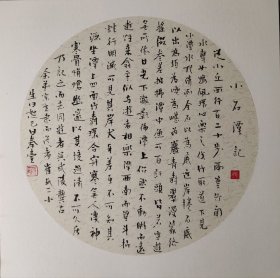 小石潭記
從小丘西行百二十步隔篁竹聞
水聲如鳴珮環心樂之伐竹取道下見
小潭水尤清冽全石以為底近岸卷石底
以出為坻為嶼為嵁為巖青樹翠蔓蒙絡
搖綴參差披拂潭中魚可百許頭皆若空遊
無所依日光下澈影布石上佁然不動俶爾遠
逝往來翕忽似與遊者相樂潭西南而望斗折
蛇行明滅可見其岸勢犬牙差互不可知其
源坐潭上四面竹樹環合寂寥無人淒神
寒骨悄愴幽邃以其境過清不可久居
乃記之而去同遊者吳武陵龔古
余弟宗玄隸而從者崔氏二小
生曰恕己曰奉壹